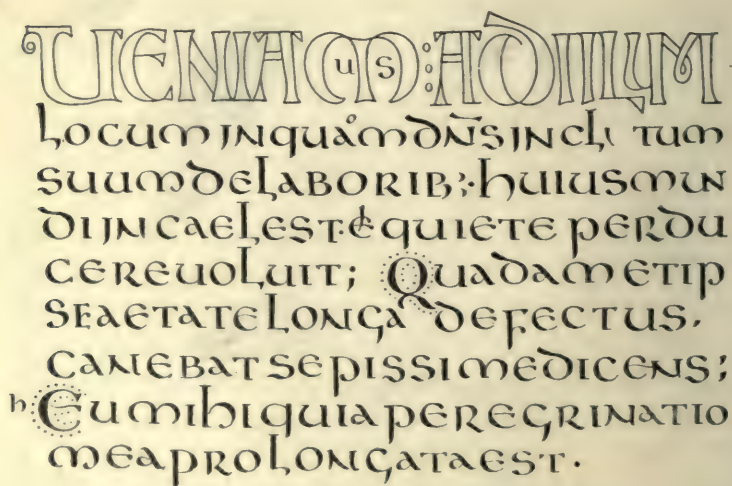 UENIAMUS: AD ILLUM
LOCUM IN QUAoM DN̄S INCLITUM
SUUM DE LABORIB;· HUIUS MUN
DI IN CAELEST·E QUIETE PERDU
CERE UOLUIT; QUADAM ET IP
SE AETATE LONGA DEFECTUS.
CANEBAT SEPISSIME DICENS;
h: EU MIHI QUIA PEREGRINATIO
MEA PROLONGATA EST.